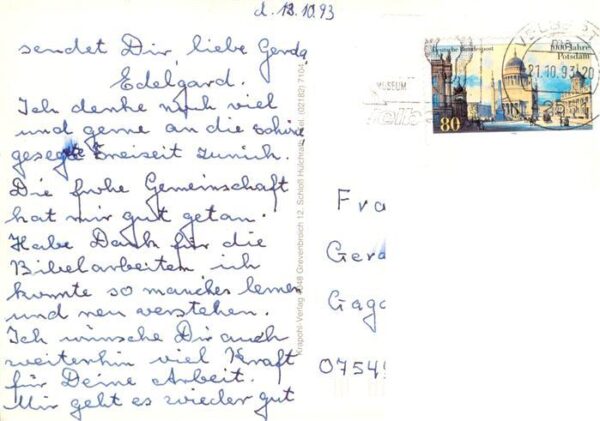 d. 13.10.93
sendet Dir, liebe Gerda
Edelgard.
Ich denke noch viel
und gerne an die schöne
zurück.
Die frohe Gemeinschaft
hat mir gut getan.
Habe Dank für die
Bibelarbeiten ich
konnte so manches lernen
und neu verstehen.
Ich wünsche Dir auch
weiterhin viel Kraft
für Deine Arbeit.
Mir geht es wieder gut
Krapohl-Verlag 4048 Grevenbroich 12, Schloß Hülchrath, Tel. (02182) 7104
MUSEUM
Deutsche Bundespost
1000 Jahre
Potsdam
80
21.10.93-20
Fra
Gerd
Gaga
07549